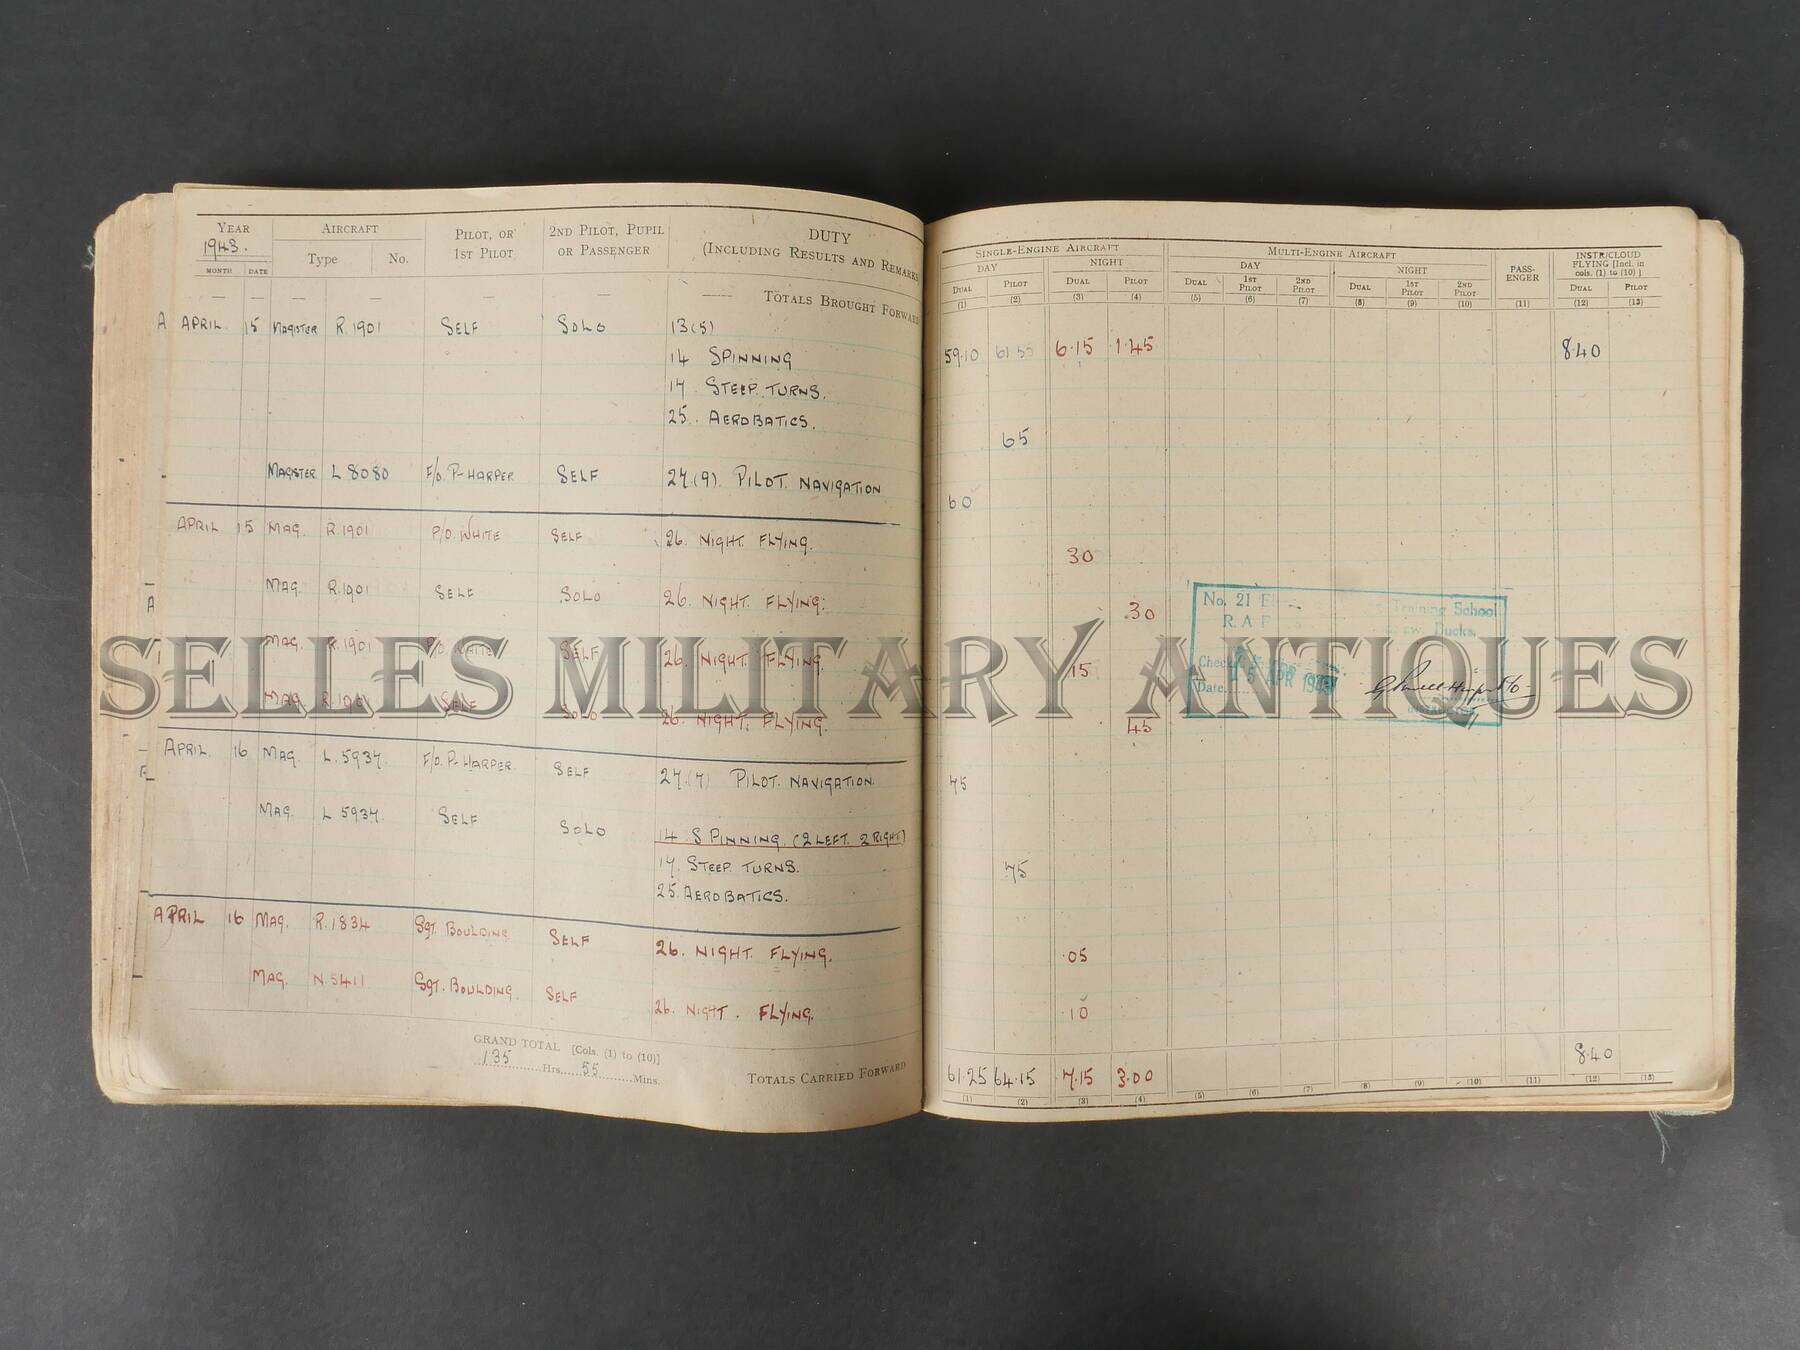 YEAR AIRCRAFT PILOT, OR 1ST PILOT 2ND PILOT, PUPIL OR PASSENGER DUTY (INCLUDING RESULTS AND REMARKS
1943. Type No.
MONTH DATE
— — — — — — — TOTALS BROUGHT FORWARD
A APRIL 15 MAGISTER R.1901 SELF SOLO 13(5)
14 SPINNING
17 STEEP TURNS.
25. AEROBATICS.
MAGISTER L 8080 F/O. P-HARPER SELF 27.(9) PILOT. NAVIGATION
APRIL 15 MAG. R.1901 P/O. WHITE SELF 26. NIGHT. FLYING.
A MAG. R.1901 SELF SOLO 26. NIGHT. FLYING.
MAG. R.1901 P/O. WHITE SELF 26. NIGHT. FLYING.
MAG. R.1901 SELF SOLO 26. NIGHT. FLYING.
APRIL. 16 MAG. L. 5937. F/O. P-HARPER. SELF 27.(7) PILOT. NAVIGATION.
MAG. L 5937. SELF SOLO 14. SPINNING. (2 LEFT. 2 RIGHT)
17. STEEP TURNS.
25. AEROBATICS.
APRIL 16 MAG. R.1834 SGT. BOULDING SELF 26. NIGHT. FLYING.
MAG. N.5411 SGT. BOULDING. SELF 26. NIGHT. FLYING.
GRAND TOTAL [Cols. (1) to (10)]
135 Hrs. 55 Mins.
TOTALS CARRIED FORWARD
SINGLE-ENGINE AIRCRAFT MULTI-ENGINE AIRCRAFT PASS-ENGER INSTR/CLOUD FLYING [Incl. in cols. (1) to (10)]
DAY NIGHT DAY NIGHT
DUAL PILOT DUAL PILOT DUAL 1ST PILOT 2ND PILOT DUAL 1ST PILOT 2ND PILOT DUAL PILOT
(1) (2) (3) (4) (5) (6) (7) (8) (9) (10) (11) (12) (13)
59.10 6.15 1.45 8.40
65
60
30
.30
.15
.45
75
.75
.05
.10
No. 21 Training School
R.A.F. Bucks.
Check
Date APR 1943
INSTRUCTOR
8.40
61.25 64.15 7.15 3.00
(1) (2) (3) (4) (5) (6) (7) (8) (9) (10) (11) (12) (13)
SELLES MILITARY ANTIQUES